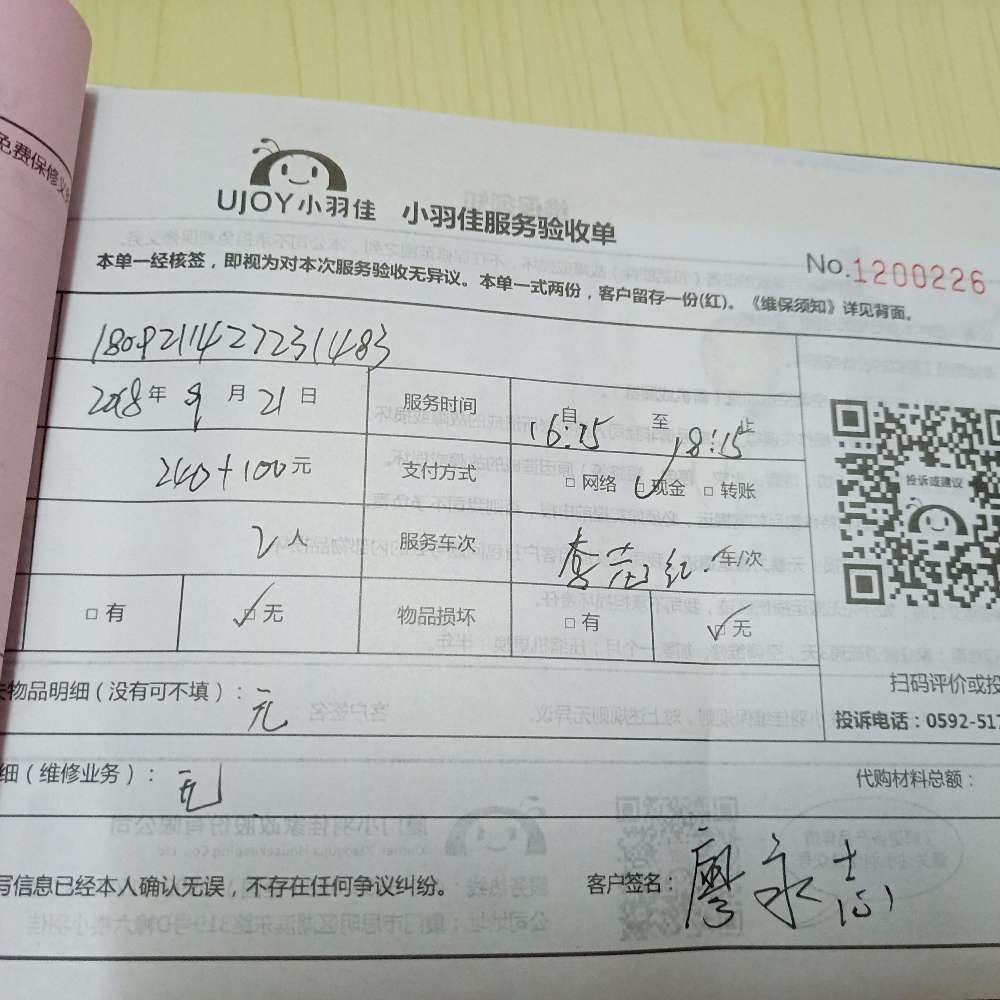 免费保修义务
UJOY小羽佳 小羽佳服务验收单
No.1200226
本单一经核签，即视为对本次服务验收无异议。本单一式两份，客户留存一份(红)。《维保须知》详见背面。
2018年9月21日 服务时间 自16:15至18:15止
240+100元 支付方式 □网络 ☑现金 □转账
2人 服务车次 车/次
投诉或建议
□有 ☑无 物品损坏 □有 ☑无
物品明细（没有可不填）：无
扫码评价或投
投诉电话：0592-517
细（维修业务）：无 代购材料总额：
写信息已经本人确认无误，不存在任何争议纠纷。 客户签名：廖永志